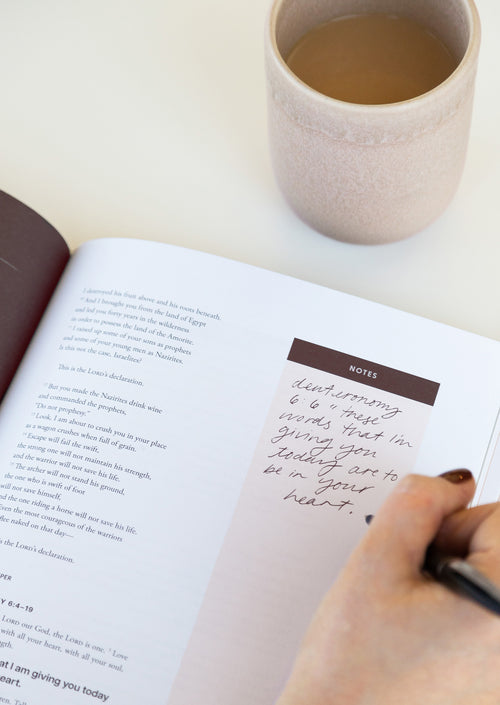 I destroyed his fruit above and his roots beneath.
10 And I brought you from the land of Egypt
and led you forty years in the wilderness
in order to possess the land of the Amorite.
11 I raised up some of your sons as prophets
and some of your young men as Nazirites.
Is this not the case, Israelites?
This is the LORD's declaration.
12 But you made the Nazirites drink wine
and commanded the prophets,
"Do not prophesy."
13 Look, I am about to crush you in your place
as a wagon crushes when full of grain.
14 Escape will fail the swift,
the strong one will not maintain his strength,
and the warrior will not save his life.
15 The archer will not stand his ground,
the one who is swift of foot
will not save himself,
and the one riding a horse will not save his life.
Even the most courageous of the warriors
flee naked on that day—
s the LORD's declaration.
PER
Y 6:4–19
LORD our God, the LORD is one. 5 Love
with all your heart, with all your soul,
ngth.
at I am giving you today
eart.
NOTES
deuteronomy
6:6 "these
words that i'm
giving you
today are to
be in your
heart.